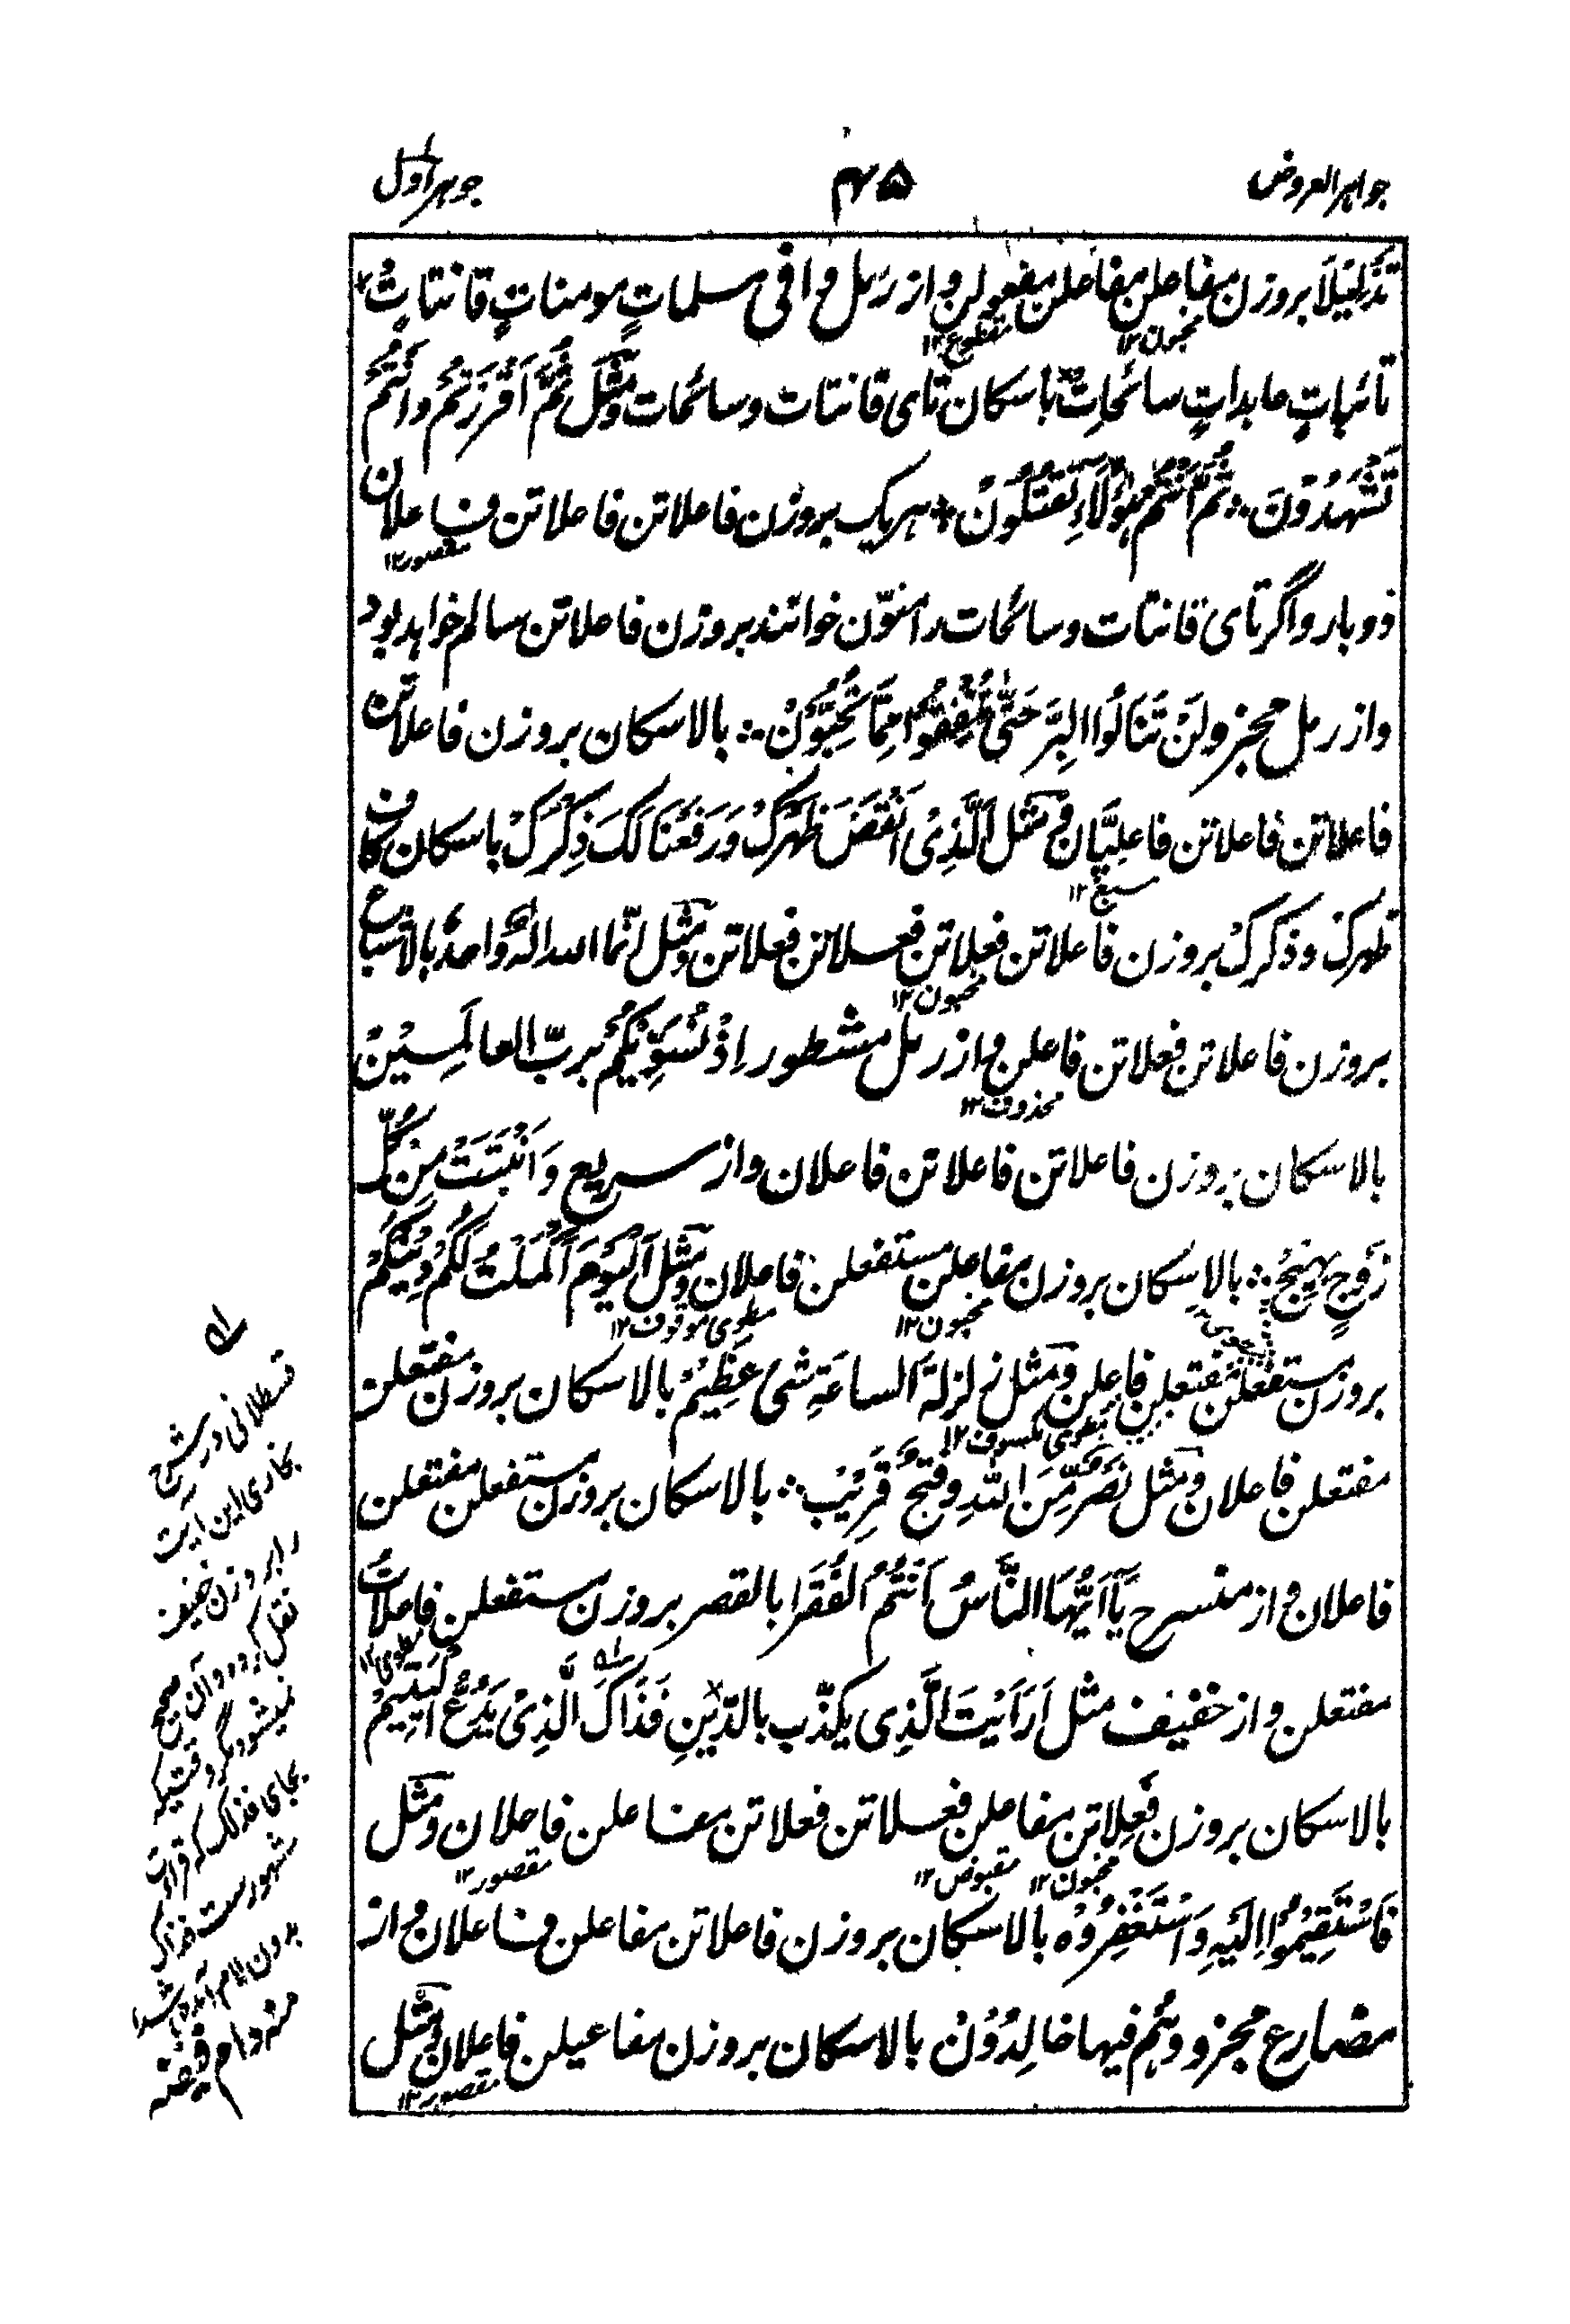 جواہر العروض
۴۵
جوہر اول
تَذْلِیْلَا بروزن مفاعلن مفاعلن مفعولن و از رمل وافی مسلماتٍ مومناتٍ قانتاتٌ
مخبون۱۲ مقطوع۱۲
تائباتٍ عابداتٍ سائحاتٌ باسکان تای قانتات و سائحات و مثل ثُمَّ اَقْرَرْتُمْ وَاَنْتُمْ
تَشْهَدُوْنَ ثُمَّ اَنْتُمْ هٰؤُلَاءِ تَقْتُلُوْنَ ہریک بروزن فاعلاتن فاعلاتن فاعلان
مقصور۱۲
دوبار و اگر تای قانتات و سائحات را منوّن خوانند بروزن فاعلاتن سالم خواہد بود
و از رمل مجزو لَنْ تَنَالُوا البِرَّ حَتّٰی تُنْفِقُوْا مِمَّا تُحِبُّوْنْ بالاسکان بروزن فاعلاتن
فاعلاتن فاعلاتن فاعلیّان و مثل اَلَّذِیْ اَنْقَضَ ظَهْرَکْ وَرَفَعْنَا لَکَ ذِکْرَکْ باسکان کاف
مسبغ۱۲
ظہرک و ذکرک بروزن فاعلاتن فعلاتن فعلاتن فعلاتن و مثل انّما اللہ الہٌ واحدٌ بالاشباع
مخبون۱۲
بروزن فاعلاتن فعلاتن فاعلن و از رمل مشطور اِذْ نُسَوِّیْکُمْ بربّ العالَمِیْنْ
محذوف۱۲
بالاسکان بروزن فاعلاتن فاعلاتن فاعلان و از سریع وَاَنْبَتَتْ مِنْ کُلِّ
زَوْجٍ بَهِیْجْ بالاسکان بروزن مفاعلن مستفعلن فاعلان و مثل اَلْیَوْمَ اَکْمَلْتُ لَکُمْ دِیْنَکُمْ
مخبون۱۲ مطوی موقوف۱۲
بروزن مستفعلن مفتعلن فاعلن و مثل زلزلۃَ الساعۃِ شیٌ عَظِیْمْ بالاسکان بروزن مفتعلن
مطوی مکسوف۱۲
مفتعلن فاعلان و مثل نَصْرٌ مِّنَ اللّٰہِ وَفَتْحٌ قَرِیْبْ بالاسکان بروزن مستفعلن مفتعلن
فاعلان و از منسرح یَآ اَیُّهَا النَّاسُ اَنْتُمُ الْفُقَرَا بالقصر بروزن مستفعلن فاعلاتُ
مطوی۱۲
مفتعلن و از خفیف مثل اَرَاَیْتَ الَّذِی یکذّب بالدّیْنِ فَذَاکَ الَّذِیْ یَدُعُّ الْیَتِیْمْ
بالاسکان بروزن فَعِلاتن مفاعلن فعلاتن فعلاتن مفاعلن فاعلان و مثل
مخبون۱۲ مقبوض۱۲ مقصور۱۲
فَاسْتَقِیْمُوْا اِلَیْہِ وَاسْتَغْفِرُوْہْ بالاسکان بروزن فاعلاتن مفاعلن فاعلان و از
مضارع مجزو وَہُمْ فیہا خالِدُوْنْ بالاسکان بروزن مفاعیلن فاعلان و مثل
مقصور۱۲
قسطلانی در شرح
بخاری این آیت
را بر وزن خفیف
نقل کردہ و آن صحیح
نمیشود مگر وقتیکہ
بجای فذلک کہ قراءت
مشہور ست فذاک
بدون لام